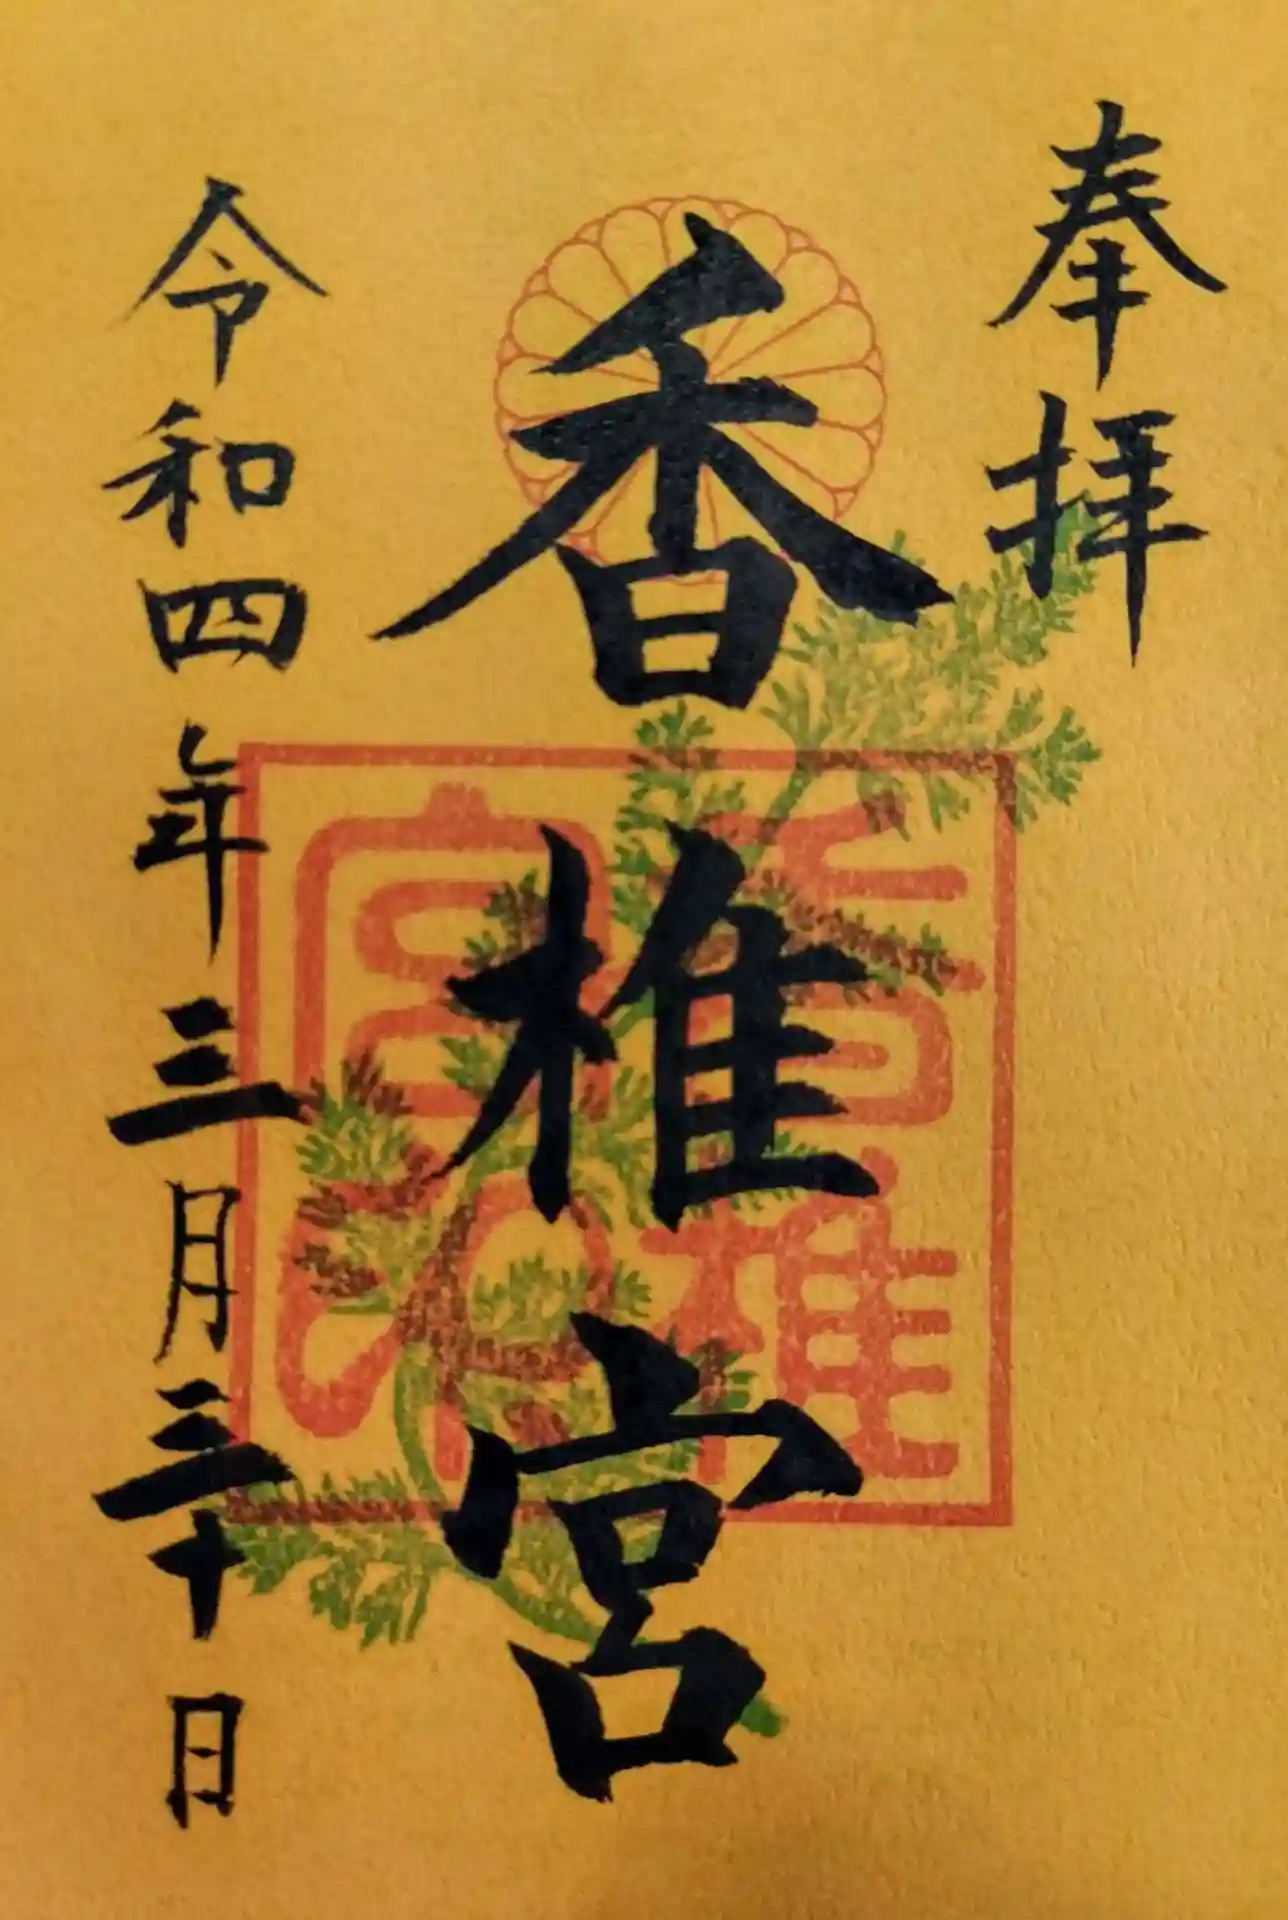 奉拝
香椎宮
令和四年三月三十日
香椎宮印